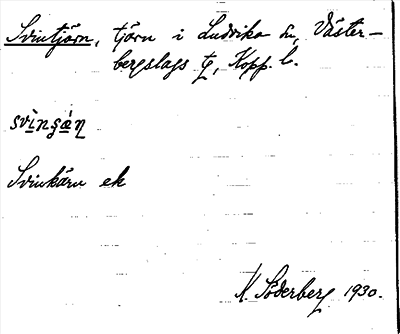 Svintjärn, tjärn i Ludvika sn, Väster-
bergslags tg, Kopp. l.
Svinkärn ek
K. Söderberg 1930.